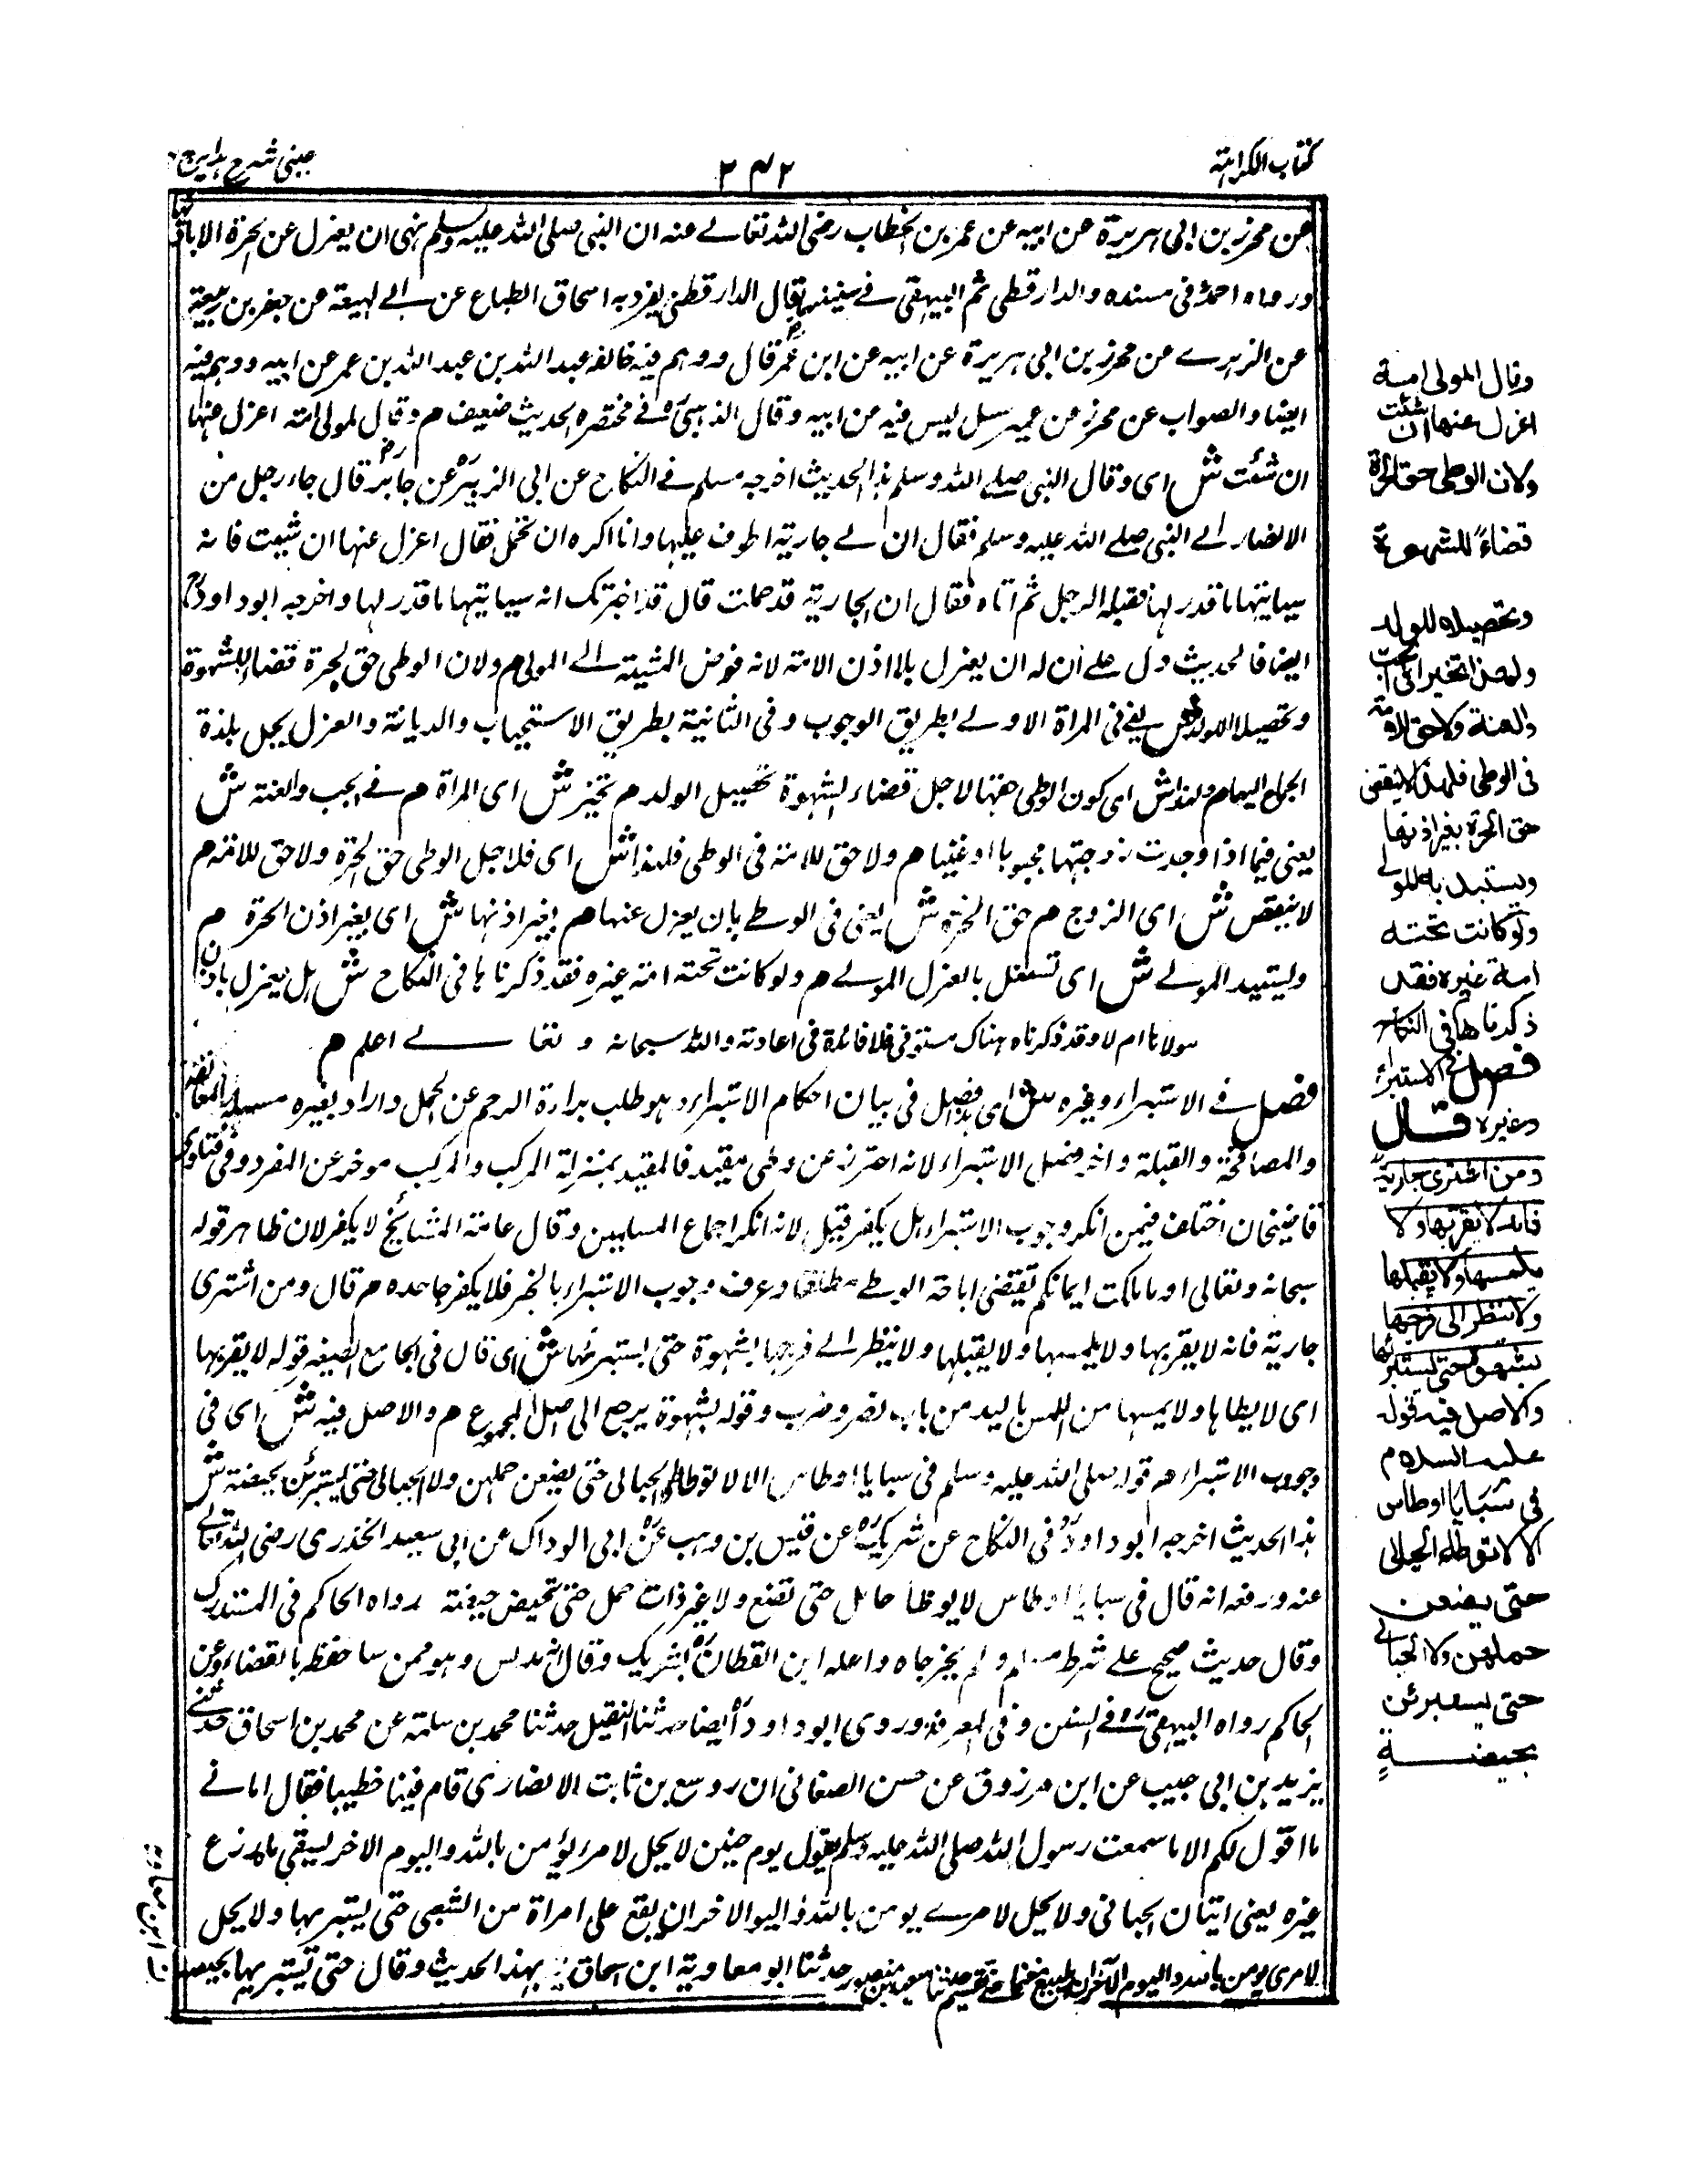 كتاب الكراهية
٢٤٢
عينى شرح هداية ج
عن محرز بن ابى هريرة عن ابيه عن عمر بن الخطاب رضى الله تعالے عنه ان النبى صلى الله عليه وسلم نهى ان يعزل عن الحرة الا باذنها
ورواه احمدؒ فى مسنده والدارقطنى ثم البيهقى فے سننهما قال الدارقطنى يفرد به اسحاق الطباع عن ابے لهيعة عن جعفر بن ربيعة
عن الزهرے عن محرز بن ابى هريرة عن ابيه عن ابن عمرؓ قال ووهم فيه خالفه عبد الله بن عبد الله بن عمر عن ابيه ووهم فيه
ايضا والصواب عن محرز عن عمر مرسل ليس فيه عن ابيه وقال الذهبىؒ فے مختصره الحديث ضعيف م وقال لمولى امته اعزل عنها
ان شئت ش اى وقال النبى صلے الله وسلم هذا الحديث اخرجه مسلم فے النكاح عن ابى الزبيرؒ عن جابرؓ قال جاء رجل من
الانصار الے النبى صلے الله عليه وسلم فقال ان لے جارية اطوف عليها وانا اكره ان تحمل فقال اعزل عنها ان شئت فانه
سياتيها ما قدر لها فقبله الرجل ثم اتاه فقال ان الجارية قد حملت قال قد اخبرتك انه سياتيها ما قدر لها واخرجه ابو داودؒ
ايضا فالحديث دل علے ان له ان يعزل بلا اذن الامة لانه فوض المشيئة الے المولى م ولان الوطى حق الحرة قضاء للشهوة
وتحصيلا للولد ش يعنے فى المراة الاولے بطريق الوجوب وفى الثانية بطريق الاستحباب والديانة والعزل يخل بلذة
الجماع اليها م ولهذا ش اى كون الوطى حقها لاجل قضاء الشهوة تحصيل الولد م تخير ش اى المراة م فے الجب والعنة ش
يعنى فيما اذا وجدت زوجها مجبوبا او عنينا م ولا حق للامة فى الوطى فلهذا ش اى فلاجل الوطى حق الحرة ولا حق للامة م
لا ينقص ش اى الزوج م حق الحرة ش يعنى فى الوطے بان يعزل عنها م بغير اذنها ش اى بغير اذن الحرة م
وليستبد المولے ش اى تستقل بالعزل المولے م ولو كانت تحته امة غيره فقد ذكرناها فى النكاح ش بل يعزل باذن
مولانا ام لا وقد ذكرناه هناك مستوفى فلا فائدة فى اعادته والله سبحانه وتعالے اعلم م
فصل فے الاستبراء وغيره ش اى هذا فصل فى بيان احكام الاستبراء وهو طلب براءة الرحم عن الحمل واراد بغيره مسئلة المعانقة
والمصافحة والقبلة واخر فصل الاستبراء لانه احترز عن وطى مقيد فالمقيد بمنزلة المركب والمركب موخر عن المفرد وفى فتاوى
قاضيخان اختلف فيمن انكر وجوب الاستبراء هل يكفر قيل لانه انكر اجماع المسلمين وقال عامة المشائخ لا يكفر لان ظاهر قوله
سبحانه وتعالى او ما ملكت ايمانكم تقتضى اباحة الوطے مطلقا وعرف وجوب الاستبراء بالخبر فلا يكفر جاحده م قال ومن اشترى
جارية فانه لا يقربها ولا يلمسها ولا يقبلها ولا ينظر الے فرجها بشهوة حتى يستبرئها ش اى قال فى الجامع الصغير قوله لا يقربها
اى لا يطاها ولا يمسها من اللمس باليد من باب نصر وضرب وقوله بشهوة يرجع الى اصل المجموع م والاصل فيه ش اى فى
وجوب الاستبراء م قوله صلى الله عليه وسلم فى سبايا اوطاس الا لا توطا الحبالى حتى يضعن حملهن ولا الحبالى حتى يستبرئن بحيضة ش
هذا الحديث اخرجه ابو داودؒ فى النكاح عن شريكؒ عن قيس بن وهب عن ابى الوداك عن ابى سعيد الخدرى رضى الله تعالے
عنه ورفعه انه قال فى سبايا اوطاس لا يوطا حامل حتى تضع ولا غير ذات حمل حتى تحيض حيضة رواه الحاكم فى المستدرك
وقال حديث صحيح علے شرط مسلم ولم يخرجاه واعله ابن القطانؒ بشريك وقال انه مدلس وهو ممن ساء حفظه بالقضاء وعن
الحاكم رواه البيهقىؒ فے السنن وفى المعرفة وروى ابو داودؒ ايضا حدثنا النفيلى حدثنا محمد بن سلمة عن محمد بن اسحاق حدثنے
يزيد بن ابى حبيب عن ابن مرزوق عن حسن الصغانى ان رويفع بن ثابت الانصارى قام فينا خطيبا فقال اما انے
ما اقول لكم الا ما سمعت رسول الله صلى الله عليه وسلم يقول يوم حنين لا يحل لامرء يؤمن بالله واليوم الاخر ليسقى ماءه زرع
غيره يعنى اتيان الحبالى ولا يحل لامرے يومن بالله واليوم الاخر ان يقع على امراة من السبى حتى يستبريها ولا يحل
لامرى يومن بالله واليوم الآخر ان يبيع مغنما حتى يقسم حدثنا سعيد بن منصور حدثنا ابو معاوية ابن اسحاق بهذا الحديث وقال حتى تستبريها بحيضة
وقال المولى امة
اعزل عنها ان شئت
ولان الوطى حق الحرة
قضاءً للشهوة
وتحصيلا للولد
ولهذا تخير فى الجب
والعنة ولا حق للامة
فى الوطى فلهذا لا ينقص
حق الحرة بغير اذنها
ويستبد به المولے
ولو كانت تحته
امة غيره فقد
ذكرناها فى النكاح
فصل فى الاستبراء
وغيره قال
ومن اشترى جارية
فانه لا يقربها ولا
يلمسها ولا يقبلها
ولا ينظر الى فرجها
بشهوة حتى يستبرئها
والاصل فيه قوله
عليه السلام
فى سبايا اوطاس
الا لا توطا الحبالى
حتى يضعن
حملهن ولا الحبالے
حتى يستبرئن
بحيضةٍ